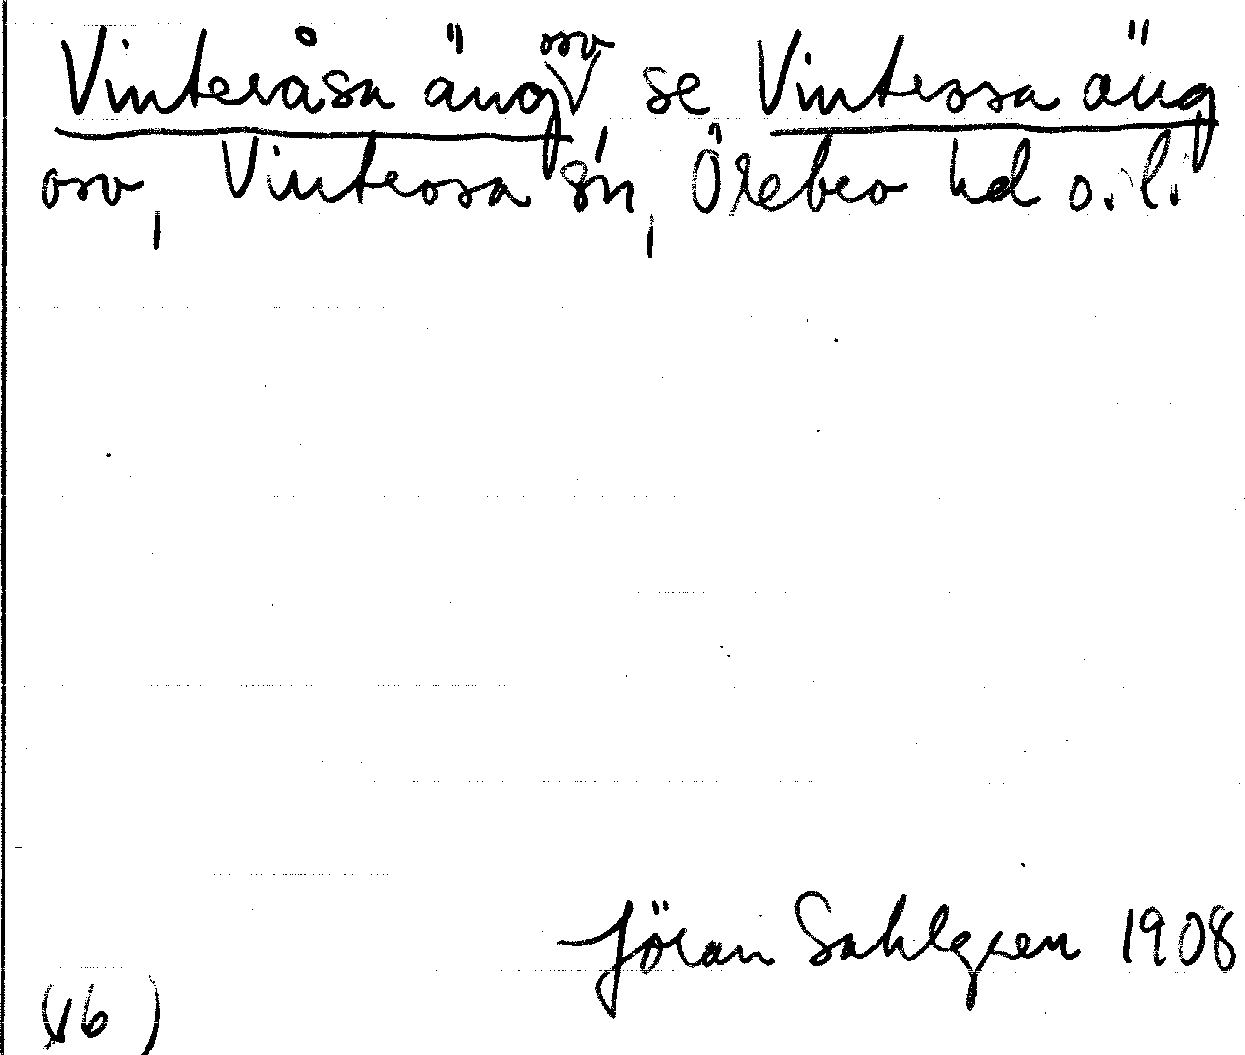 Vinteråsa äng osv se Vintrosa äng
osv, Vintrosa sn, Örebro hd o. l.
Jöran Sahlgren 1908
(16)